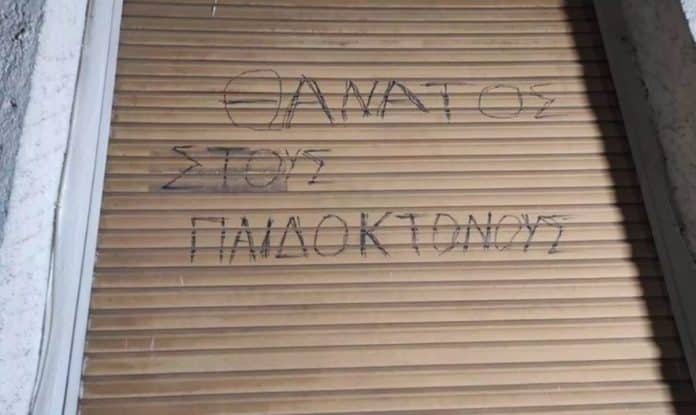 ΘΑΝΑΤΟΣ
ΣΤΟΥΣ
ΠΑΙΔΟΚΤΟΝΟΥΣ